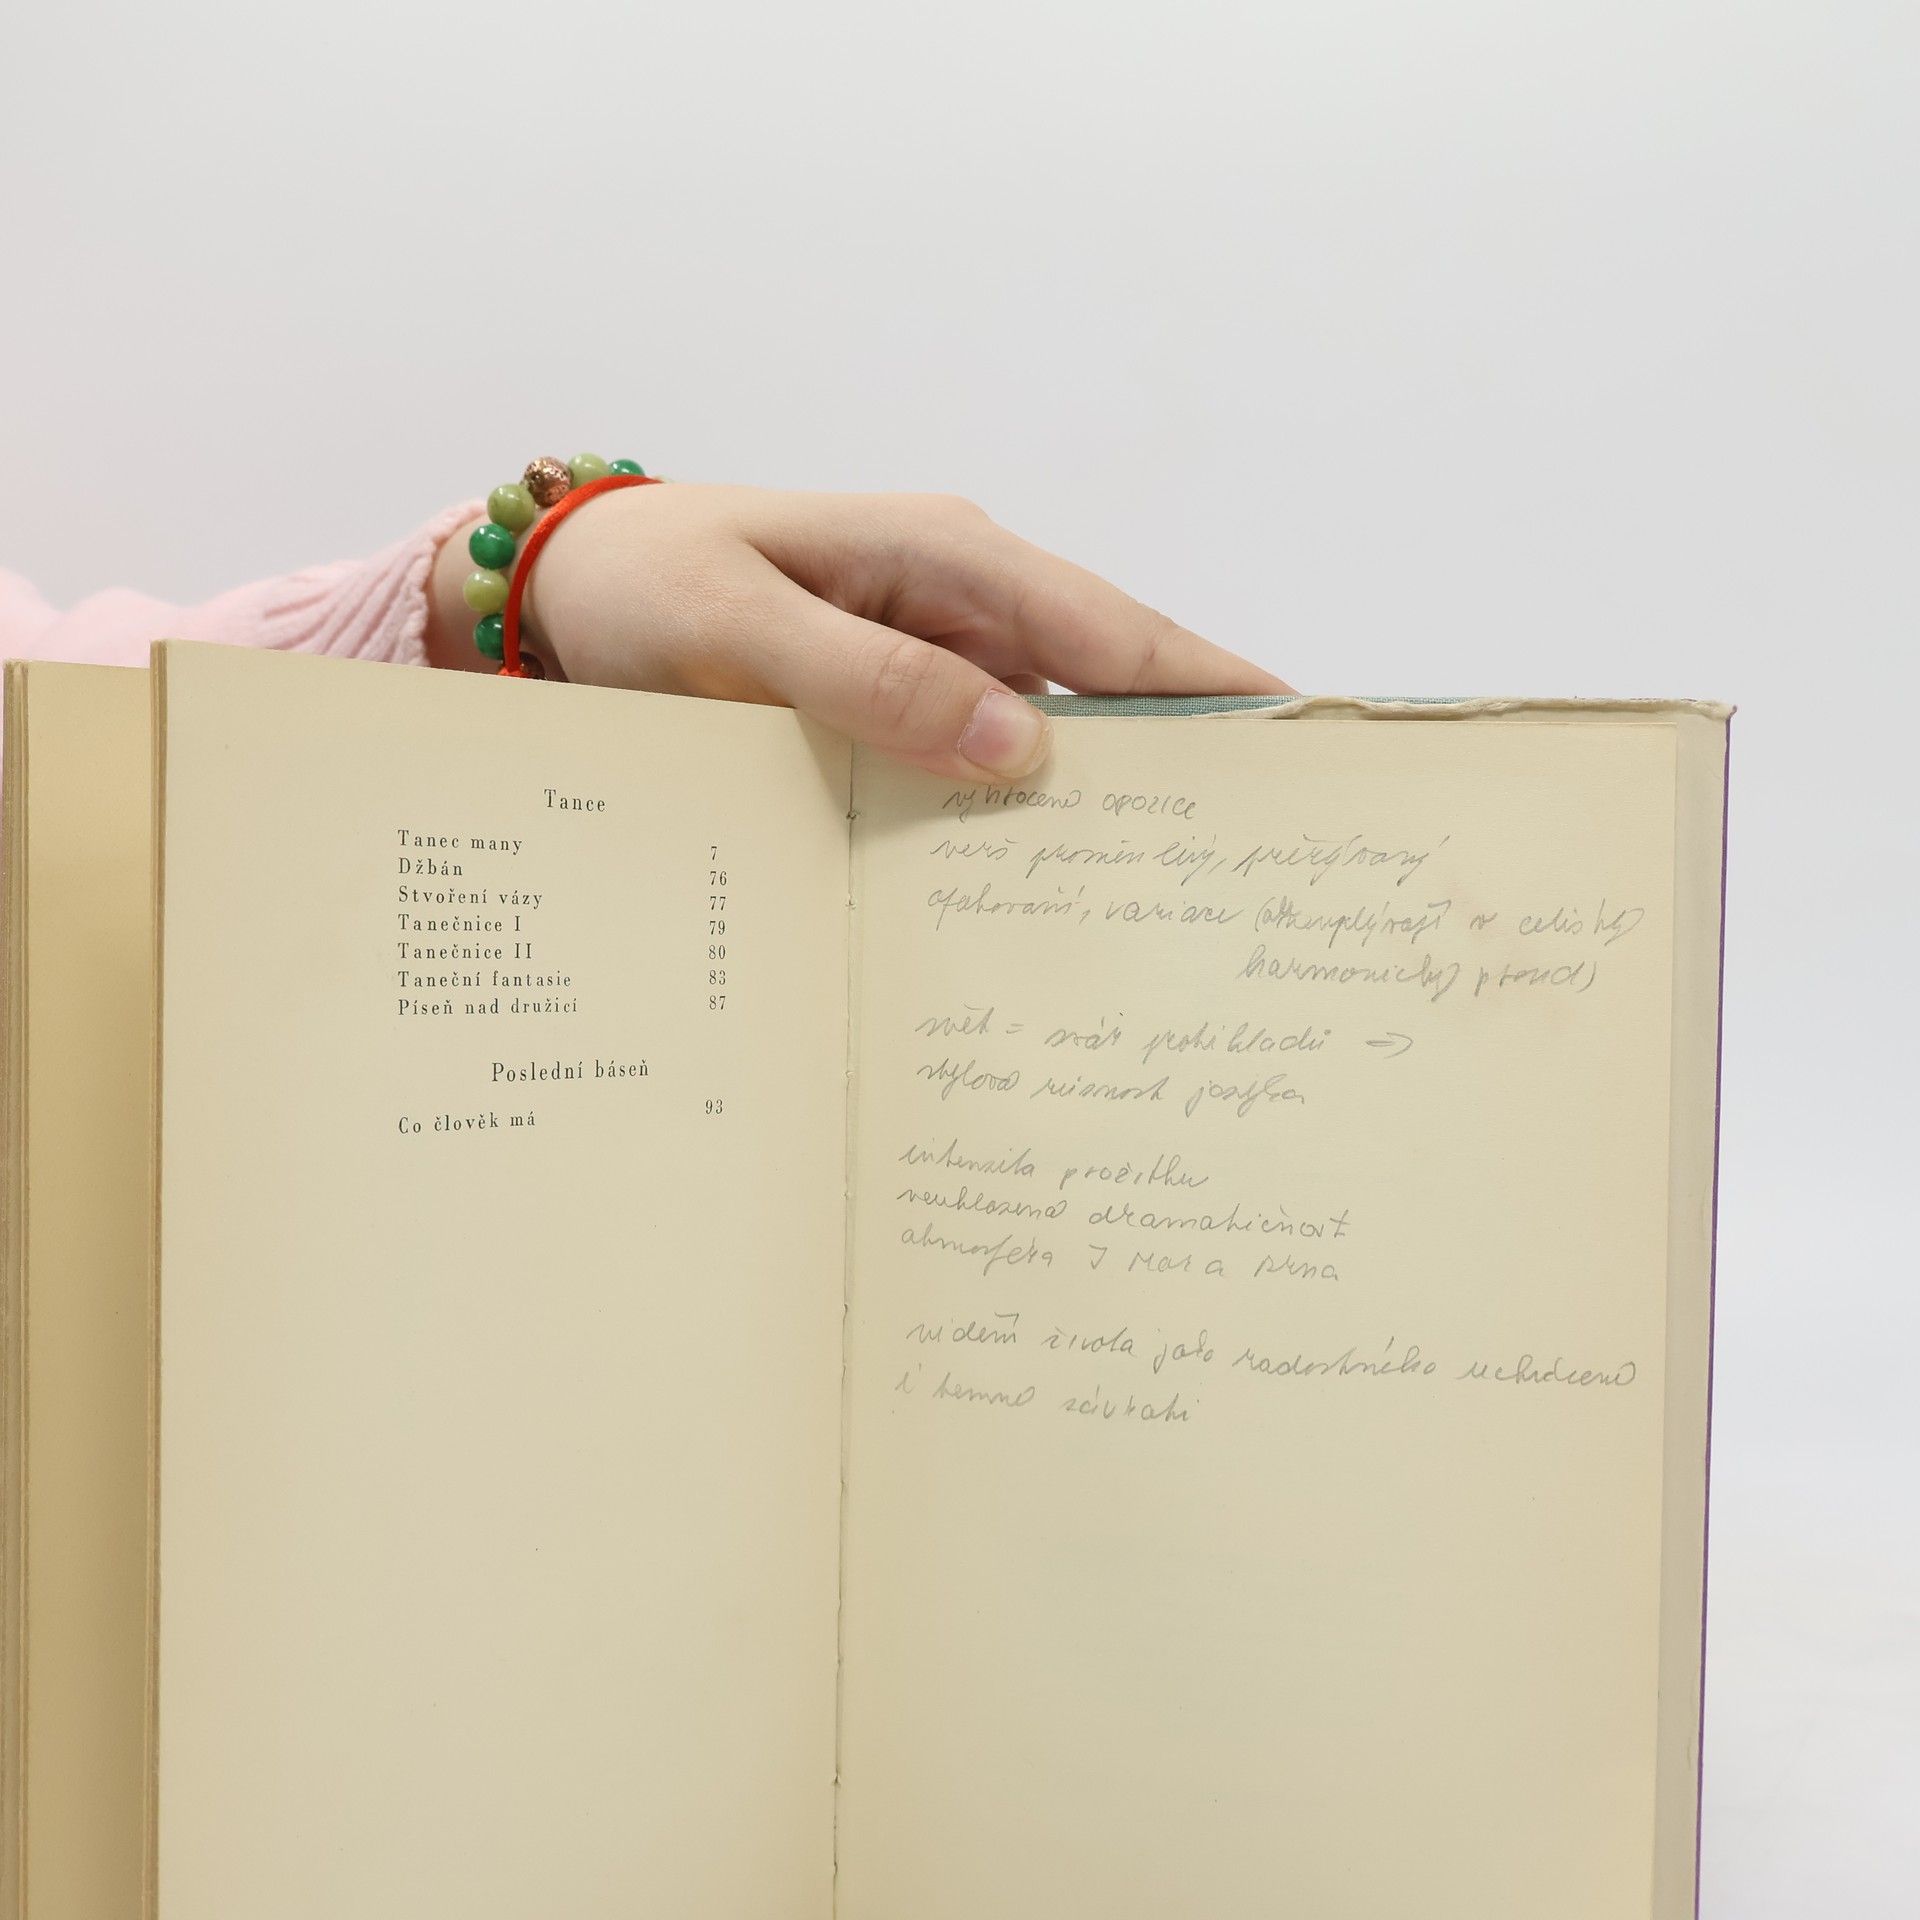 Tance
Tanec many 7
Džbán 76
Stvoření vázy 77
Tanečnice I 79
Tanečnice II 80
Taneční fantasie 83
Píseň nad družicí 87
Poslední báseň
Co člověk má 93
opozice
verš proměnlivý, přerývaný
opakování, variace v celistvý
harmonický proud)
svět = svár protikladů =>
stylová různost jazyka
intenzita prožitku
neuhlazená dramatičnost
atmosféra
vidění života jako radostného
i temné závrati